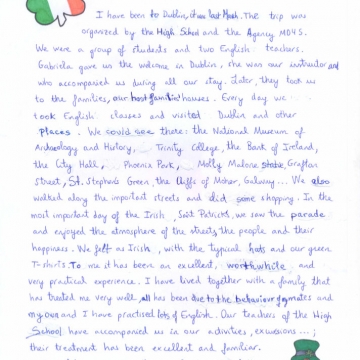 I have been to Dublin, since last March. The trip was
organized by the High School and the Agency MDYS.
We were a group of students and two English teachers.
Gabriela gave us the welcome in Dublin, she was our instructor and
who accompanied us during all our stay. Later, they took us
to the families, our host families' houses. Every day we
took English classes and visited Dublin and other
places. We could see there: the National Museum of
Archaeology and History, Trinity College, the Bank of Ireland,
the City Hall, Phoenix Park, Molly Malone statue, Grafton
Street, St. Stephen's Green, the Cliffs of Moher, Galway... We also
walked along the important streets and did some shopping. In the
most important day of the Irish, Saint Patrick's, we saw the parade
and enjoyed the atmosphere of the streets, the people and their
happiness. We felt as Irish, with the typical hats and our green
T-shirts. To me it has been an excellent, worthwhile and
very practical experience. I have lived together with a family that
has treated me very well, all has been due to the behaviour of my mates and
my own and I have practised lots of English. Our teachers of the High
School have accompanied us in our activities, excursions...;
their treatment has been excellent and familiar.